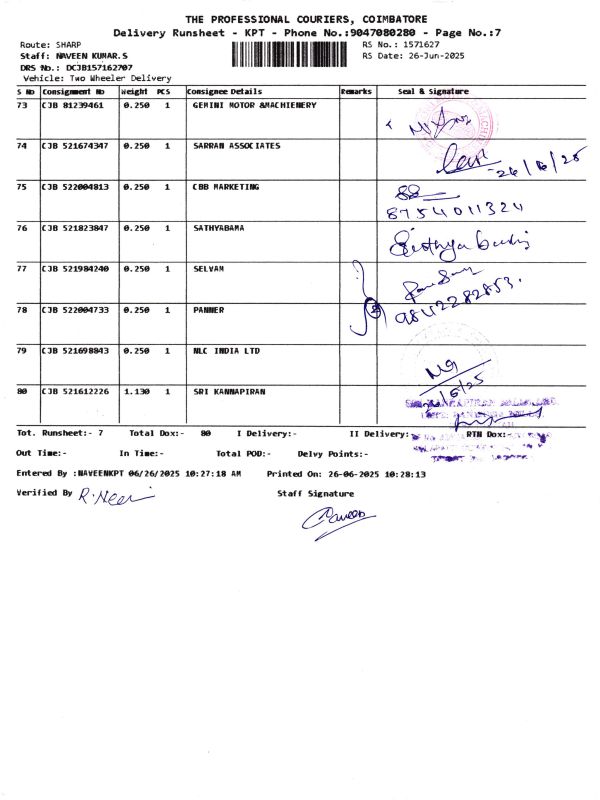 THE PROFESSIONAL COURIERS, COIMBATORE
Delivery Runsheet - KPT - Phone No.:9047080280 - Page No.:7
Route: SHARP RS No.: 1571627
Staff: NAVEEN KUMAR.S RS Date: 26-Jun-2025
DRS No.: DCJB157162707
Vehicle: Two Wheeler Delivery
S No Consignment No Weight PCS Consignee Details Remarks Seal & Signature
73 CJB 81239461 0.250 1 GEMINI MOTOR &MACHIENERY
74 CJB 521674347 0.250 1 SARRAN ASSOCIATES
26/6/25
75 CJB 522004813 0.250 1 CBB MARKETING
8754011324
76 CJB 521823847 0.250 1 SATHYABAMA
77 CJB 521984240 0.250 1 SELVAM
9842282853.
78 CJB 522004733 0.250 1 PANNER
79 CJB 521698843 0.250 1 NLC INDIA LTD
80 CJB 521612226 1.130 1 SRI KANNAPIRAN
Tot. Runsheet:- 7 Total Dox:- 80 I Delivery:- II Delivery:- RTN Dox:-
Out Time:- In Time:- Total POD:- Delvy Points:-
Entered By :NAVEENKPT 06/26/2025 10:27:18 AM Printed On: 26-06-2025 10:28:13
Verified By Staff Signature